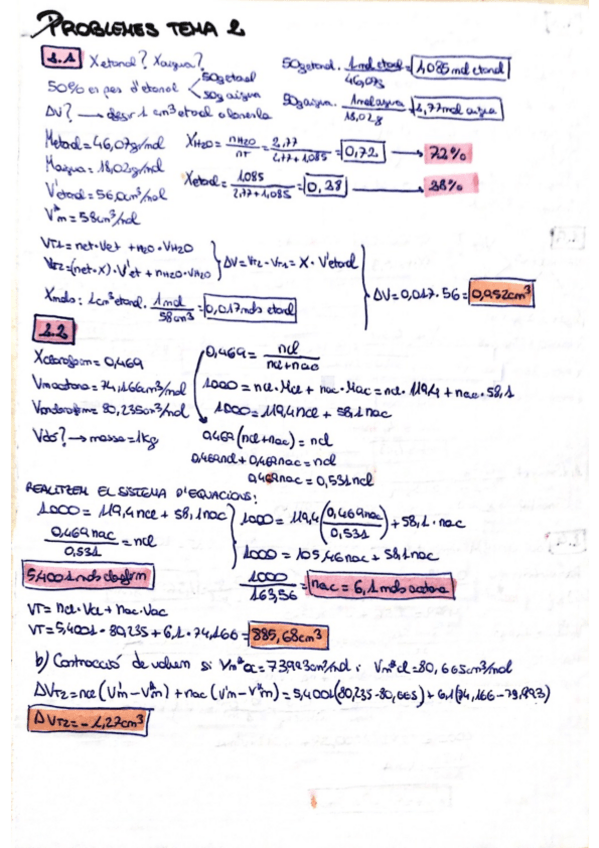 PROBLEMES TEMA 2
2.1 Xetanol? Xaigua?
50% en pes d'etanol 50g etanol 50g aigua
50g etanol · 1mol etanol / 46,07g = 1,085 mol etanol
50g aigua · 1mol aigua / 18,02g = 2,77 mol aigua
ΔV? → 1 cm³ etanol
Metanol = 46,07g/mol
Maigua = 18,02g/mol
V'etanol = 56,0cm³/mol
V*m = 58cm³/mol
XH2O = nH2O / nT = 2,77 / 2,77+1,085 = 0,72 → 72%
Xetanol = 1,085 / 2,77+1,085 = 0,28 → 28%
VT1 = net·Vet + nH2O·VH2O
VT2 = (net+x)·V'et + nH2O·VH2O
ΔV = VT2 - VT1 = X · V'etanol
Xmols: 1cm³ etanol · 1mol / 58cm³ = 0,017mols etanol
ΔV = 0,017·56 = 0,952cm³
2.2
Xcloroform = 0,469
Vmacetona = 74,166cm³/mol
Vmcloroform = 80,235cm³/mol
Vdis? → massa = 1kg
0,469 = ncl / ncl+nac
1000 = ncl·Mcl + nac·Mac = ncl·119,4 + nac·58,1
1000 = 119,4ncl + 58,1nac
0,469(ncl+nac) = ncl
0,469ncl + 0,469nac = ncl
0,469nac = 0,531ncl
REALITZEM EL SISTEMA D'EQUACIONS:
1000 = 119,4ncl + 58,1nac
0,469nac / 0,531 = ncl
1000 = 119,4(0,469nac / 0,531) + 58,1·nac
1000 = 105,46nac + 58,1nac
5,4001mols cloroform
1000 / 163,56 = nac = 6,1mols acetona
VT = ncl·Vcl + nac·Vac
VT = 5,4001·80,235 + 6,1·74,166 = 885,68cm³
b) Contracció de volum si Vm*ac = 73,993cm³/mol i Vm*cl = 80,665cm³/mol
ΔVT2 = ncl(V'm - V*m) + nac(V'm - V*m) = 5,4001(80,235-80,665) + 6,1(74,166-73,993)
ΔVT2 = -1,27cm³